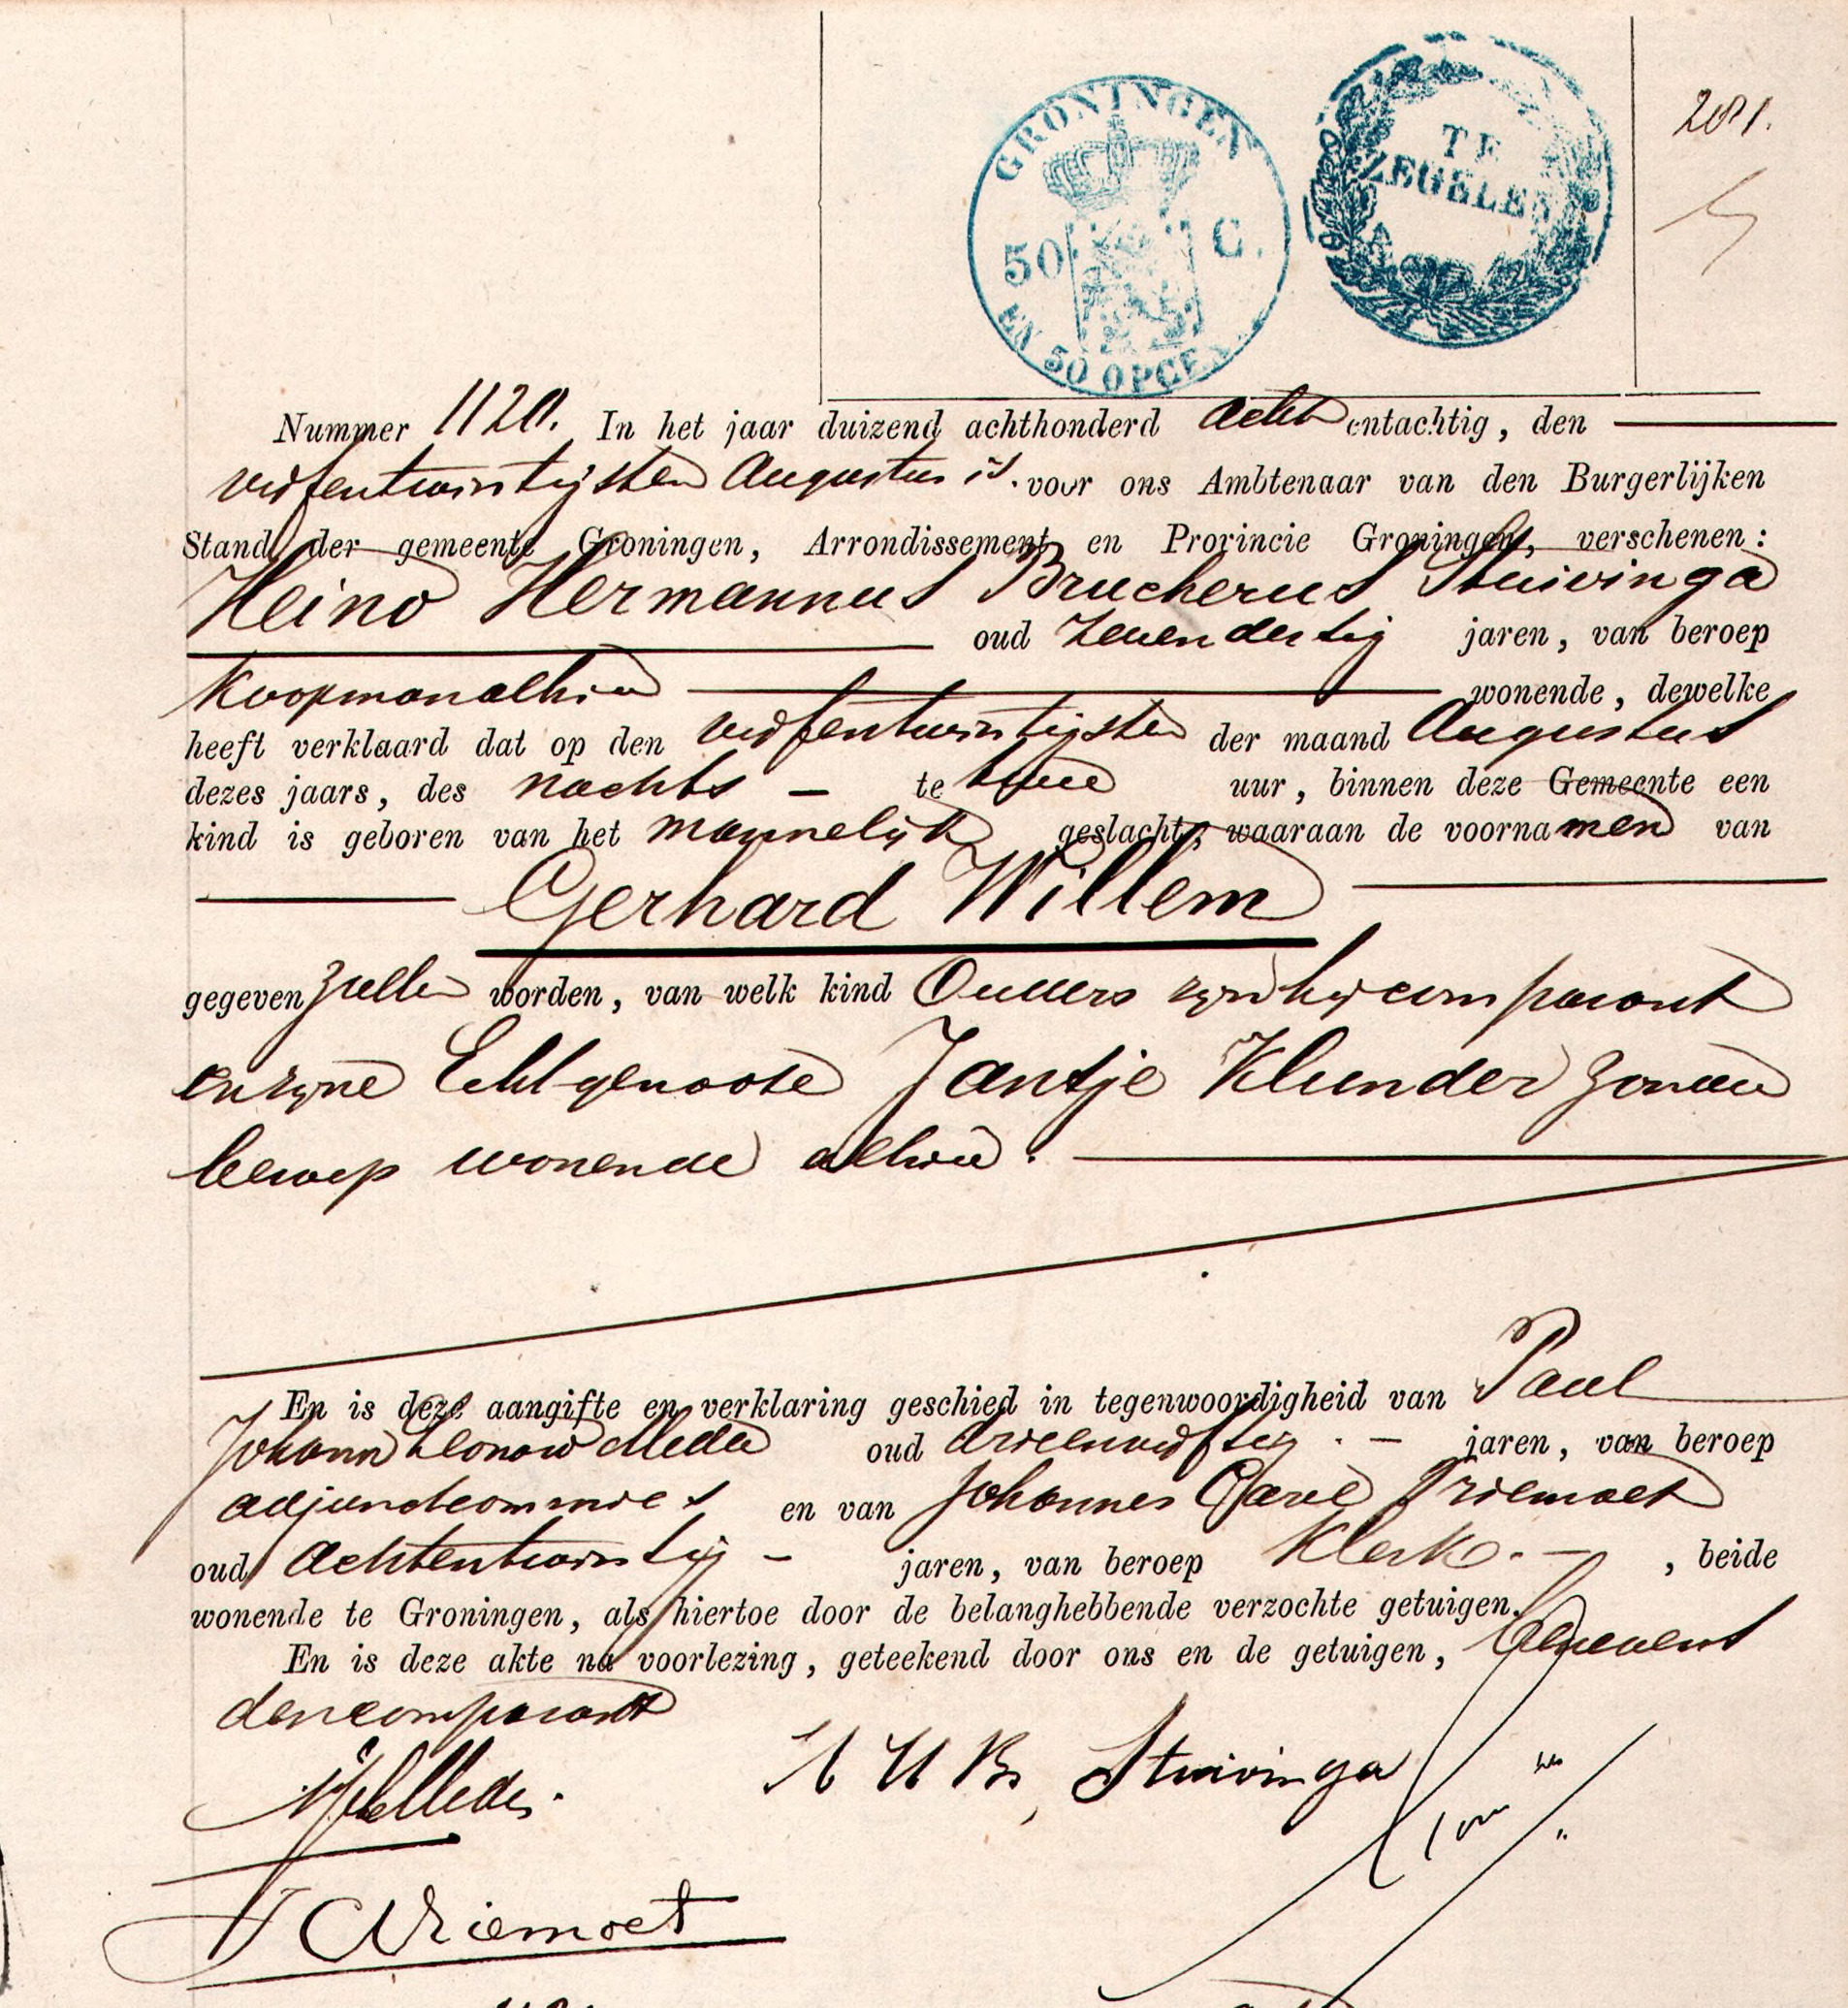 GRONINGEN
50 C.
EN 50 OPCEN.
TE
ZEGELEN
281.
Nummer 1120. In het jaar duizend achthonderd acht entachtig, den
vijfentwintigsten Augustus is. voor ons Ambtenaar van den Burgerlijken
Stand der gemeente Groningen, Arrondissement en Provincie Groningen, verschenen:
Heino Hermannus Brucherus Stuivinga
oud zevendertig jaren, van beroep
Koopman alhier wonende, dewelke
heeft verklaard dat op den vijfentwintigsten der maand Augustus
dezes jaars, des nachts te twee uur, binnen deze Gemeente een
kind is geboren van het mannelijk geslacht, waaraan de voornamen van
Gerhard Willem
gegeven zullen worden, van welk kind Ouders zijn hij comparant
en zijne Echtgenoote Jantje Klunder zonder
beroep wonende alhier.
En is deze aangifte en verklaring geschied in tegenwoordigheid van Paul
Johann oud drieenvijftig jaren, van beroep
adjunctcommies en van Johannes Carel Vriemoet
oud achtentwintig jaren, van beroep Klerk , beide
wonende te Groningen, als hiertoe door de belanghebbende verzochte getuigen.
En is deze akte na voorlezing, geteekend door ons en de getuigen, benevens
den comparant
H H Br. Stuivinga
J C Vriemoet